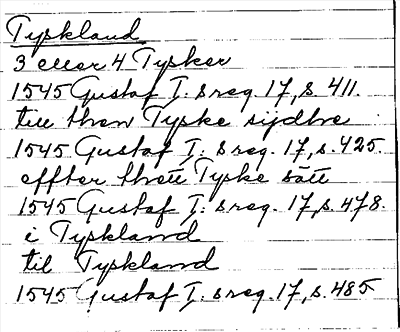 Tyskland
3 eller 4 Tysker
1545 Gustaf I: s reg. 17, s. 411.
till then Tyske sijdhe
1545 Gustaf I: s reg. 17, s. 425.
effter then Tyske sätt
1545 Gustaf I: s reg. 17, s. 478.
i Tyskland
til Tyskland
1545 Gustaf I: s reg. 17, s. 485